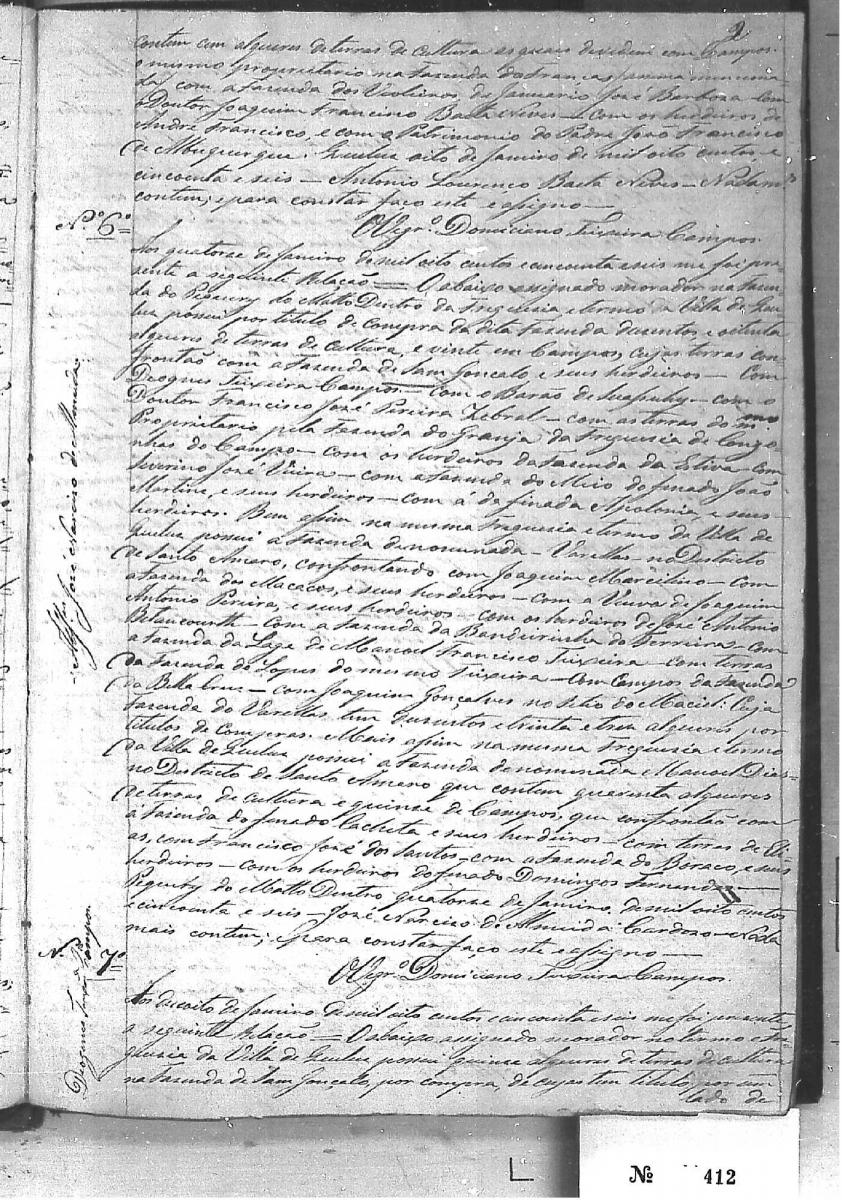 2
contem cem alqueires de terras de cultura as quais devidem com Campos
o mesmo proprietario na Fazenda do
da com a fazenda dos Violeiros de Januario José Barboza - Com
o Doutor Joaquim Francisco Baeta Neves - com os herdeiros de
André Francisco, e com o Patrimonio do Padre João Francisco
de Albuquerque. Queluz oito de Janeiro de mil oito centos e
cincoenta e seis - Antonio Lourenço Baeta Neves - Nada m.s
contem; e para constar faço este e assigno -
O Vigr.o Domiciano Teixeira Campos.
N.o 6.o
Aos quatorse de Janeiro de mil oito centos e cincoenta e seis me foi pre
sente a seguinte Relação = O abaixo assignado morador na Fazen
da do Piquery do Matto Dentro da Freguesia e termo da Villa de Que
luz possui por titulo de compra da dita fazenda dusentos, e oitenta
alqueires de terras de cultura, e vinte em Campos, cujas terras con
frontão com a fazenda de Sam Gonçalo, e seus herdeiros - Com
Diogenes Teixeira Campos - com o Barão de Suassuhy - com o
Doutor Francisco José Pereira Zebral - com as terras do m.mo
Proprietario pela Fazenda do Granja da Freguesia de Congo
nhas do Campo - com os herdeiros da Fazenda da Estiva - com
Severino José Vieira - com a fazenda do Meio do finado João
Martins, e seus herdeiros - com á da finada Apolonia, e seus
herdeiros. Bem assim na mesma Freguesia e termo da Villa de
Queluz possui a fazenda denominada - Varellas - no Districto
de Santo Amaro, confrontando com Joaquim Marcelino - com
a fazenda dos Macacos, e seus herdeiros - com a Viuva de Joaquim
Antonio Pereira, e seus herdeiros - com os herdeiros de José Antonio
Betancourtt - Com a Fazenda da Bandeirinha do Ferreira - com
a fazenda da Lage de Manoel Francisco Teixeira - com terras
da Fazenda do Lopes do mesmo Teixeira - com Campos da Fazenda
da Bella Cruz - com Joaquim Gonçalves no sitio do Maciel: Cuja
Fazenda do Varellas tem dusentos e trinta e tres alqueires por
titulos de compras. Mais assim na mesma Freguesia e termo
da Villa de Queluz possui a Fazenda denominada Manoel Dias
no Districto de Santo Amaro que contem quarenta alqueires
de terras de cultura e quinse de Campos, que confrontão com
a fazenda do finado Cacheta e seus herdeiros - com terras de Eli
as, com Francisco José dos Santos, com a fazenda do Boraco, e seus
herdeiros - com os herdeiros do finado Domingos Fernandes
Piquery do Matto Dentro quatorse de Janeiro de mil oito centos
e cincoenta e seis - José Narciso de Almeida Cardozo - Nada
mais contem; e para constar faço este e assigno -
O Vigr.o Domiciano Teixeira Campos.
José Narciso de Almeida
N. 7.o
Diogenes Teix.ra Campos
Aos desoito de Janeiro de mil oito centos e cincoenta e seis me foi presente
a seguinte Relação = O abaixo assignado morador no termo e Fre
guesia da Villa de Queluz possui quinse alqueires de terras de cultura
na Fazenda de Sam Gonçalo, por compra, de cujas tem titulo, por um
lado de
No 412